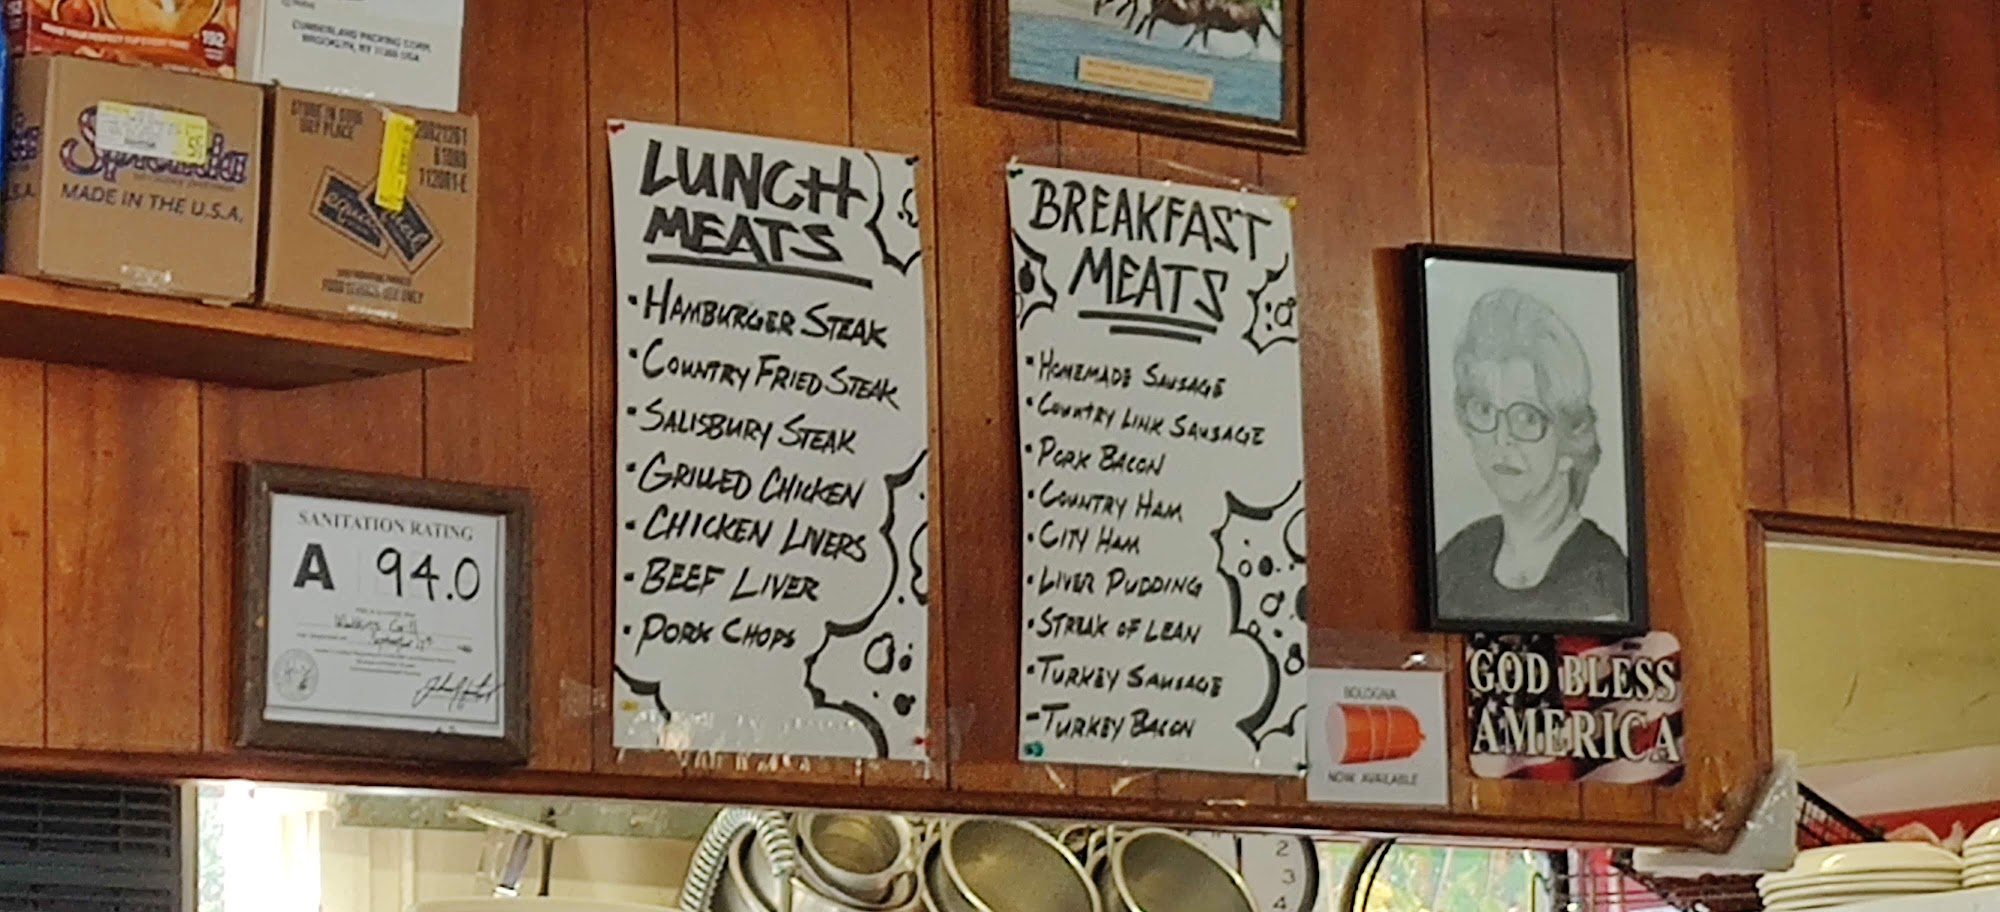 CUMBERLAND PACKING CORP.
BROOKLYN, NY 11205 USA
Splenda
MADE IN THE U.S.A.
STORE IN COOL
DRY PLACE
FOOD SERVICE USE ONLY
SANITATION RATING
A 94.0
LUNCH
MEATS
• HAMBURGER STEAK
• COUNTRY FRIED STEAK
• SALISBURY STEAK
• GRILLED CHICKEN
• CHICKEN LIVERS
• BEEF LIVER
• PORK CHOPS
BREAKFAST
MEATS
• HOMEMADE SAUSAGE
• COUNTRY LINK SAUSAGE
• PORK BACON
• COUNTRY HAM
• CITY HAM
• LIVER PUDDING
• STREAK OF LEAN
• TURKEY SAUSAGE
• TURKEY BACON
BOLOGNA
NOW AVAILABLE
GOD BLESS
AMERICA
2
3
4